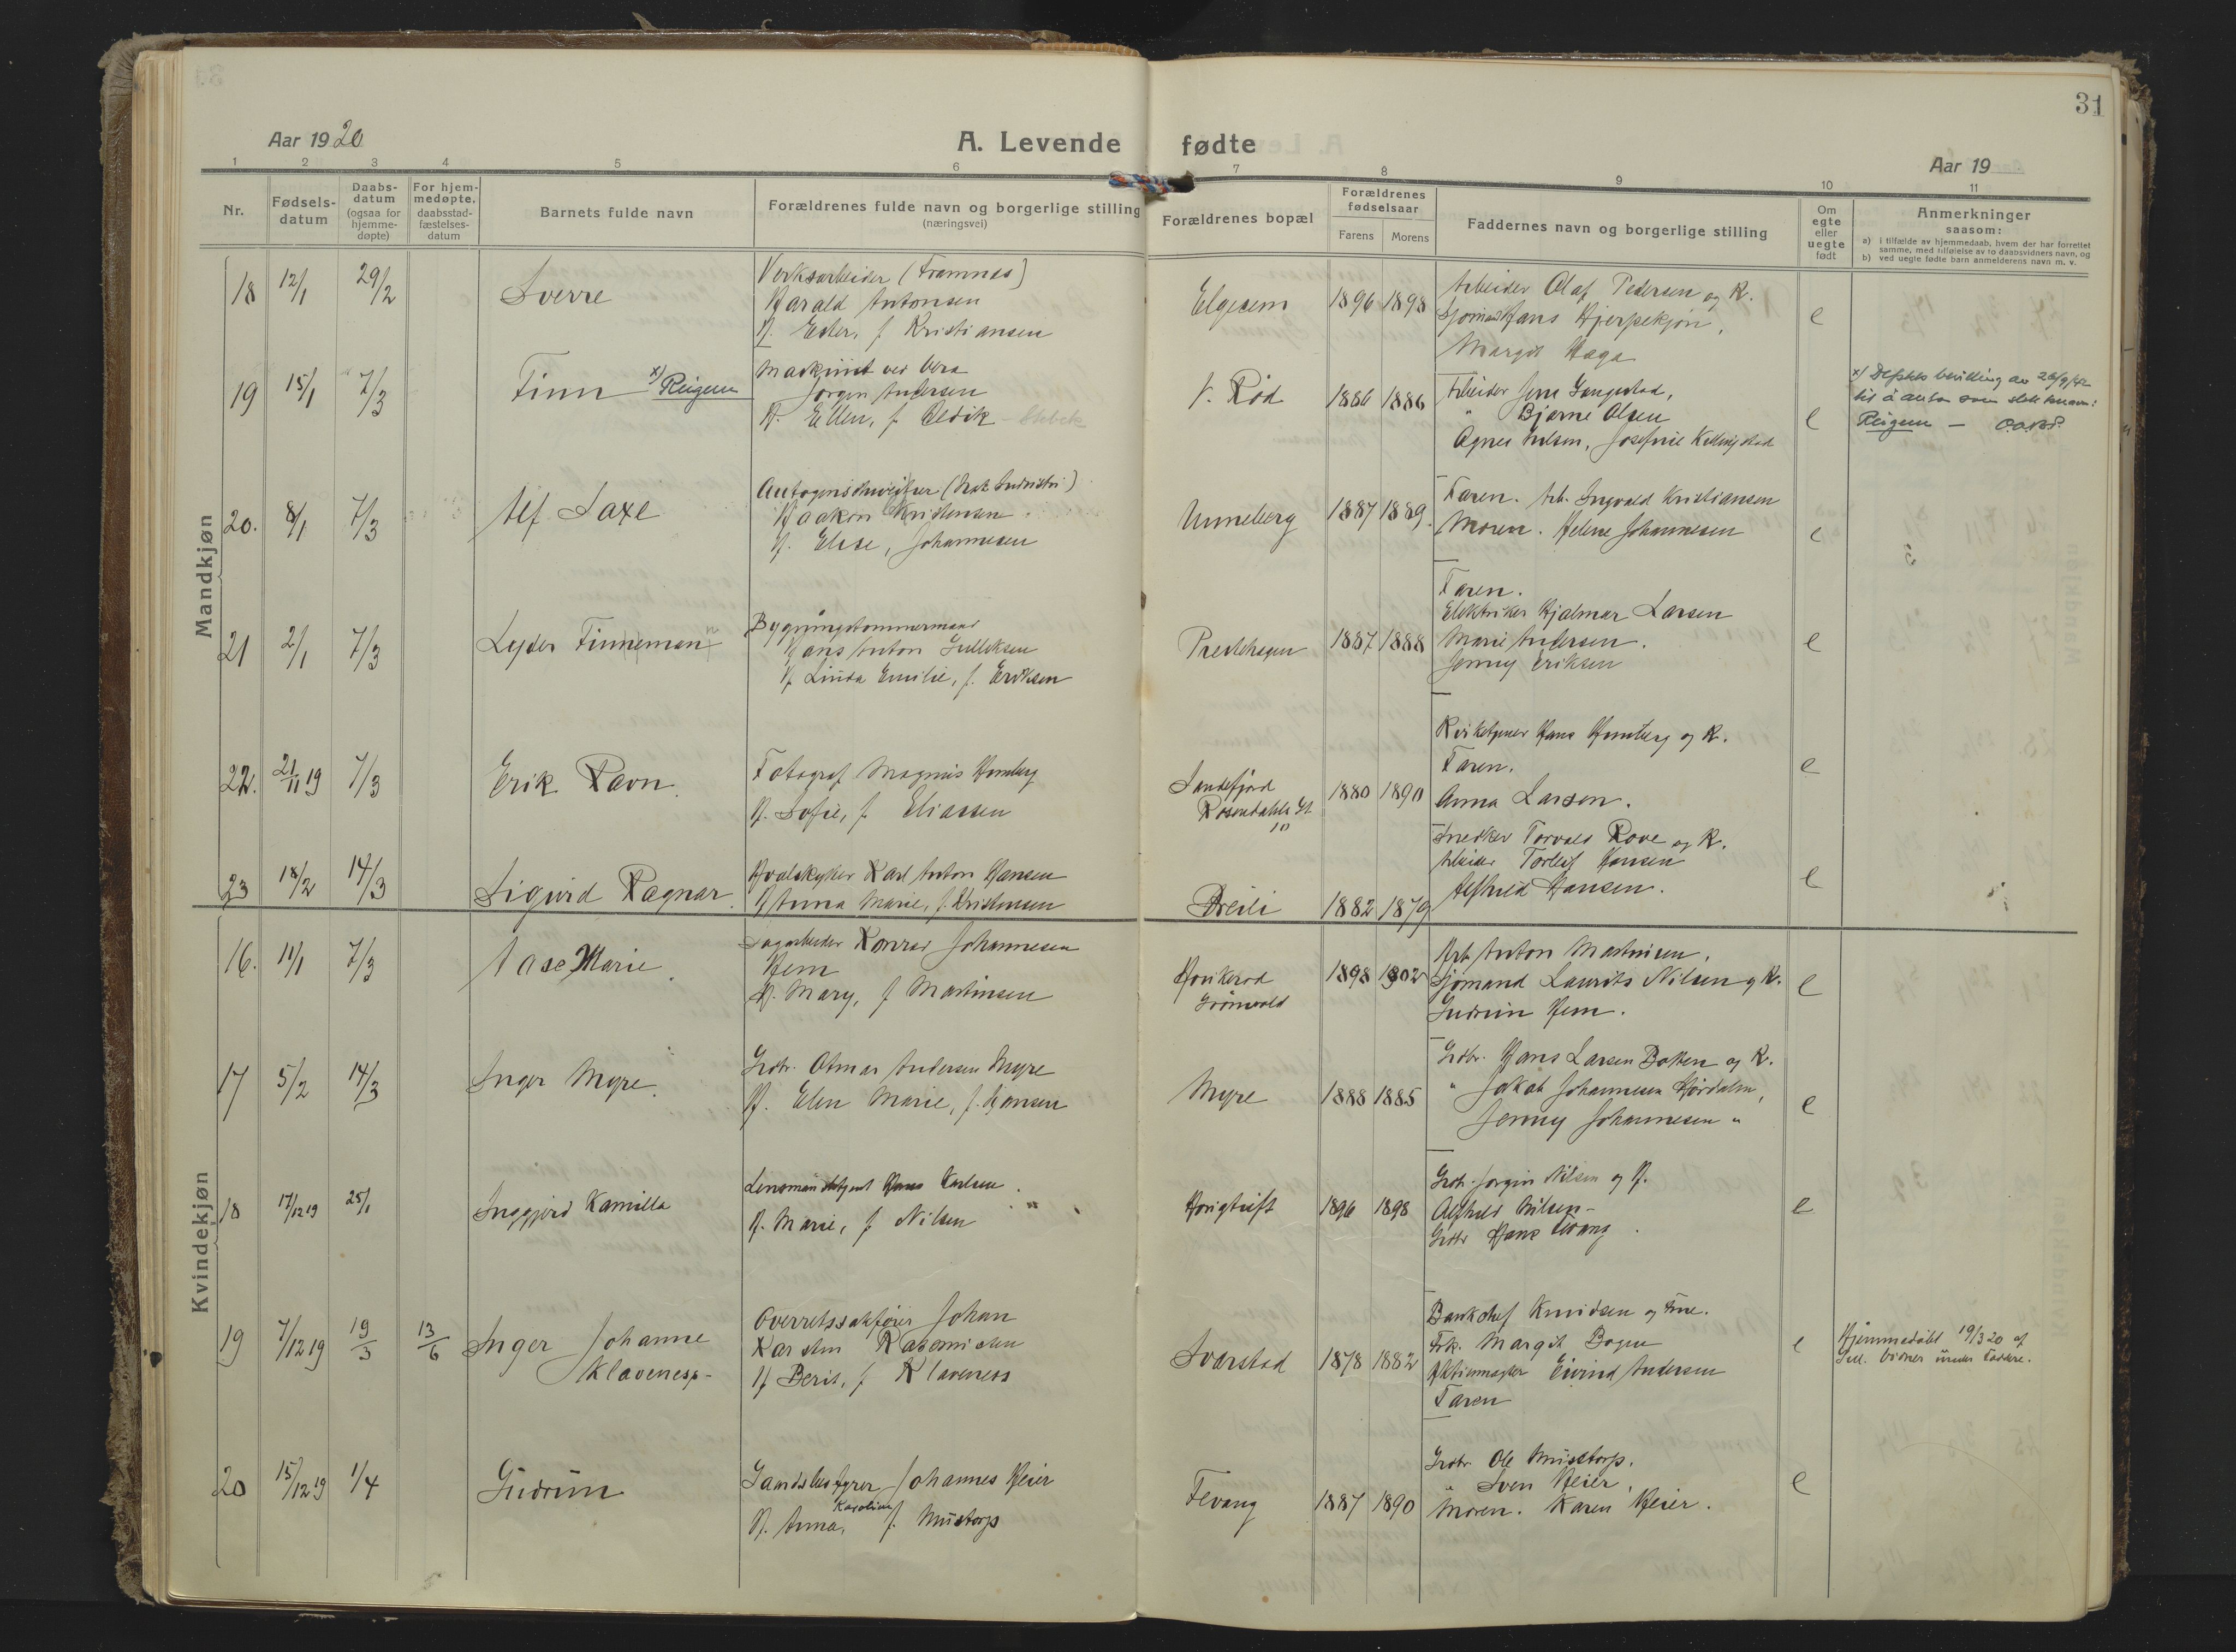 31
Aar 1920
A. Levende fødte
Aar 19
1 2 3 4 5 6 7 8 9 10 11
Nr.
Fødsels-
datum
Daabs-
datum
(ogsaa for
hjemme-
døpte)
For hjem-
medøpte,
daabsstad-
fæstelses-
datum
Barnets fulde navn
Forældrenes fulde navn og borgerlige stilling
(næringsvei)
Forældrenes bopæl
Forældrenes
fødselsaar
Farens Morens
Faddernes navn og borgerlige stilling
Om
egte
eller
uegte
født
Anmerkninger
saasom:
a) i tilfælde av hjemmedaab, hvem der har forrettet
samme, med tilføielse av to daabsvidners navn, og
b) ved uegte fødte barn anmelderens navn m. v.
Mandkjøn
18 12/1 29/2 Sverre
Verksarbeider (Framnæs)
Harald Antonsen
H. Ester, f. Kristiansen
Elgesem 1896 1898
Arbeider Olaf Pedersen og K.
Sjømand Hans Hjerpekjøn,
Margit Haga
e
19 15/1 7/3 Finn x) Reigem
Maskinist ved Vera
Jørgen Andersen
H. Ellen, f.
V. Rød 1886 1886
Arbeider Jens
" Bjarne Olsen
Agnes Nilsen, Josefine
e
x) Dpts bevilling av 26/9/42
til å anta som slektsnavn:
Reigem —
20. 8/1 7/3 Alf Saxe
Autogensveiser
Haakon Kristensen
H. Elise, Johannesen
Unneberg 1887 1889.
Faren. Arb. Ingvald Kristiansen
Moren. Helene Johannesen
e
21 2/1 7/3 Lyder Finneman
Bygningstømmermand
Hans Anton Gulliksen
H. Linda Emilie, f. Eriksen
Prestehagen 1887 1888
Faren.
Elektriker Hjalmar Larsen
Marie Andersen.
Jenny Eriksen
e
22. 21/11 19 7/3 Erik Ravn.
Fotograf Magnus Homberg
H. Sofie, f. Eliassen
Sandefjord
Rosendahls Gt
10
1880 1890
Kirketjener Hans Homberg og K.
Faren.
Anna Larsen.
e
23 18/2 14/3 Sigurd Ragnar.
Hvalskytter Karl Anton Hansen
H. Anna Marie, f. Kristensen
Breili 1882 1879
Snedker Torvald Rove og K.
Arbeider Torleif Hansen
Alfhild Hansen.
e
Kvindekjøn
16. 11/1 7/3 Aase Marie.
Dagarbeider Konrad Johannesen
Hem
H. Mary, f. Martinsen
Haukerød
Grønvold
1898 1902
Arb. Anton Martinsen,
Sjømand Laurits Nilsen og K.
Gudrun Hem.
e
17 5/2 14/3 Inger Myre.
Grdbr. Otmar Andersen Myre
H. Elen Marie, f. Hansen
Myre 1888 1885
Grdbr. Hans Larsen Botten og K.
" Jakob Johannesen Hjørdalen,
Jenny Johannesen "
e
18 17/12 19 25/1 Inggjerd Kamilla
Lensmandsbetjent Hans Karlsen.
H. Marie, f. Nilsen
1896 1898
Grdb. Jørgen Nilsen og H.
Alfhild Nilsen -
Grdbr Hans Fevang.
e
19 7/12 19 19/3 13/6 Inger Johanne
Klaveness-
Overretssakfører Johan
Karsten Rasmussen
H. Berit, f. Klaveness
Svarstad 1878 1882
Bankchef Knudsen og Frue.
Frk. Margit Bogen
Aktiemægler Eivind Andersen
Faren
e
Hjemmedøbt 19/3 20 af
20 15/12 19 1/4 Gudrun
Gaardsbestyrer Johannes Heier
H. Anna, Karoline f. Mustorp
Fevang 1887 1890
Grdbr. Ole Mustorp.
" Sven Heier,
Moren. Karen Heier.
e